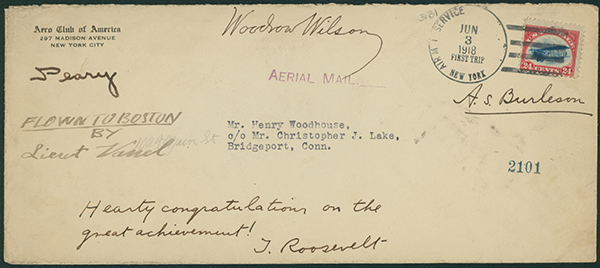 Aero Club of America
297 MADISON AVENUE
NEW YORK CITY
Woodrow Wilson
AIR MAIL SERVICE
JUN
3
1918
FIRST TRIP
NEW YORK
24 CENTS 24
Peary
AERIAL MAIL
A. S. Burleson
FLOWN TO BOSTON
BY
Lieut
Mr. Henry Woodhouse,
c/o Mr. Christopher J. Lake,
Bridgeport, Conn.
2101
Hearty congratulations on the
great achievement!
T. Roosevelt